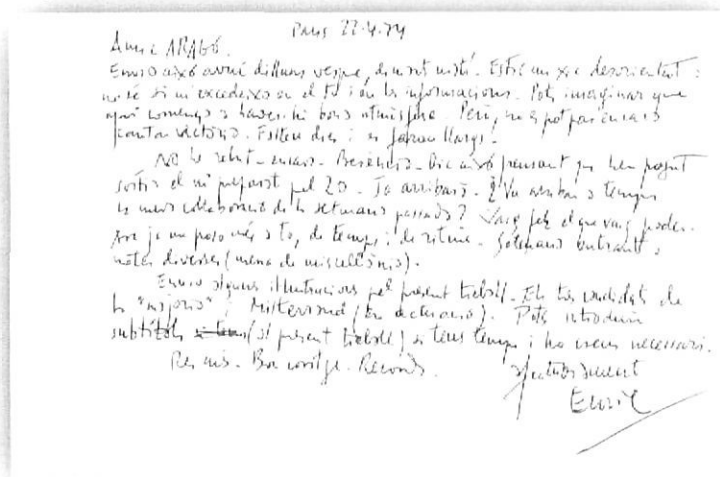 Paris 22-4-74
Amic ARAGÓ.
Envio això avui dilluns vespre, dimarts matí. Estic un xic desorientat:
no sé si m'excedeixo en el to i en les informacions. Pots imaginar que
aquí comença a haver-hi bona atmosfera. Però, no es pot pas encara
cantar victòria. Falten dies i es faran llargs!
No he rebut - encara - Dic això pensant que heu pogut
sortir el nº preparat pel 20. Ja arribarà. ¿Va arribar a temps
la meva col·laboració de la setmana passada? Vaig fer el que vaig poder.
Ara ja em poso més a to, de temps i de ritme. Setmana entrant,
notes diverses (mena de miscel·lània).
Envio algunes il·lustracions pel present treball. Els tres candidats de
la "majoria" i Mitterrand (en actuació). Pots introduir
subtítols (al present treball) si tens temps i ho creus necessari.
Res més. Bon coratge. Records.
Enric